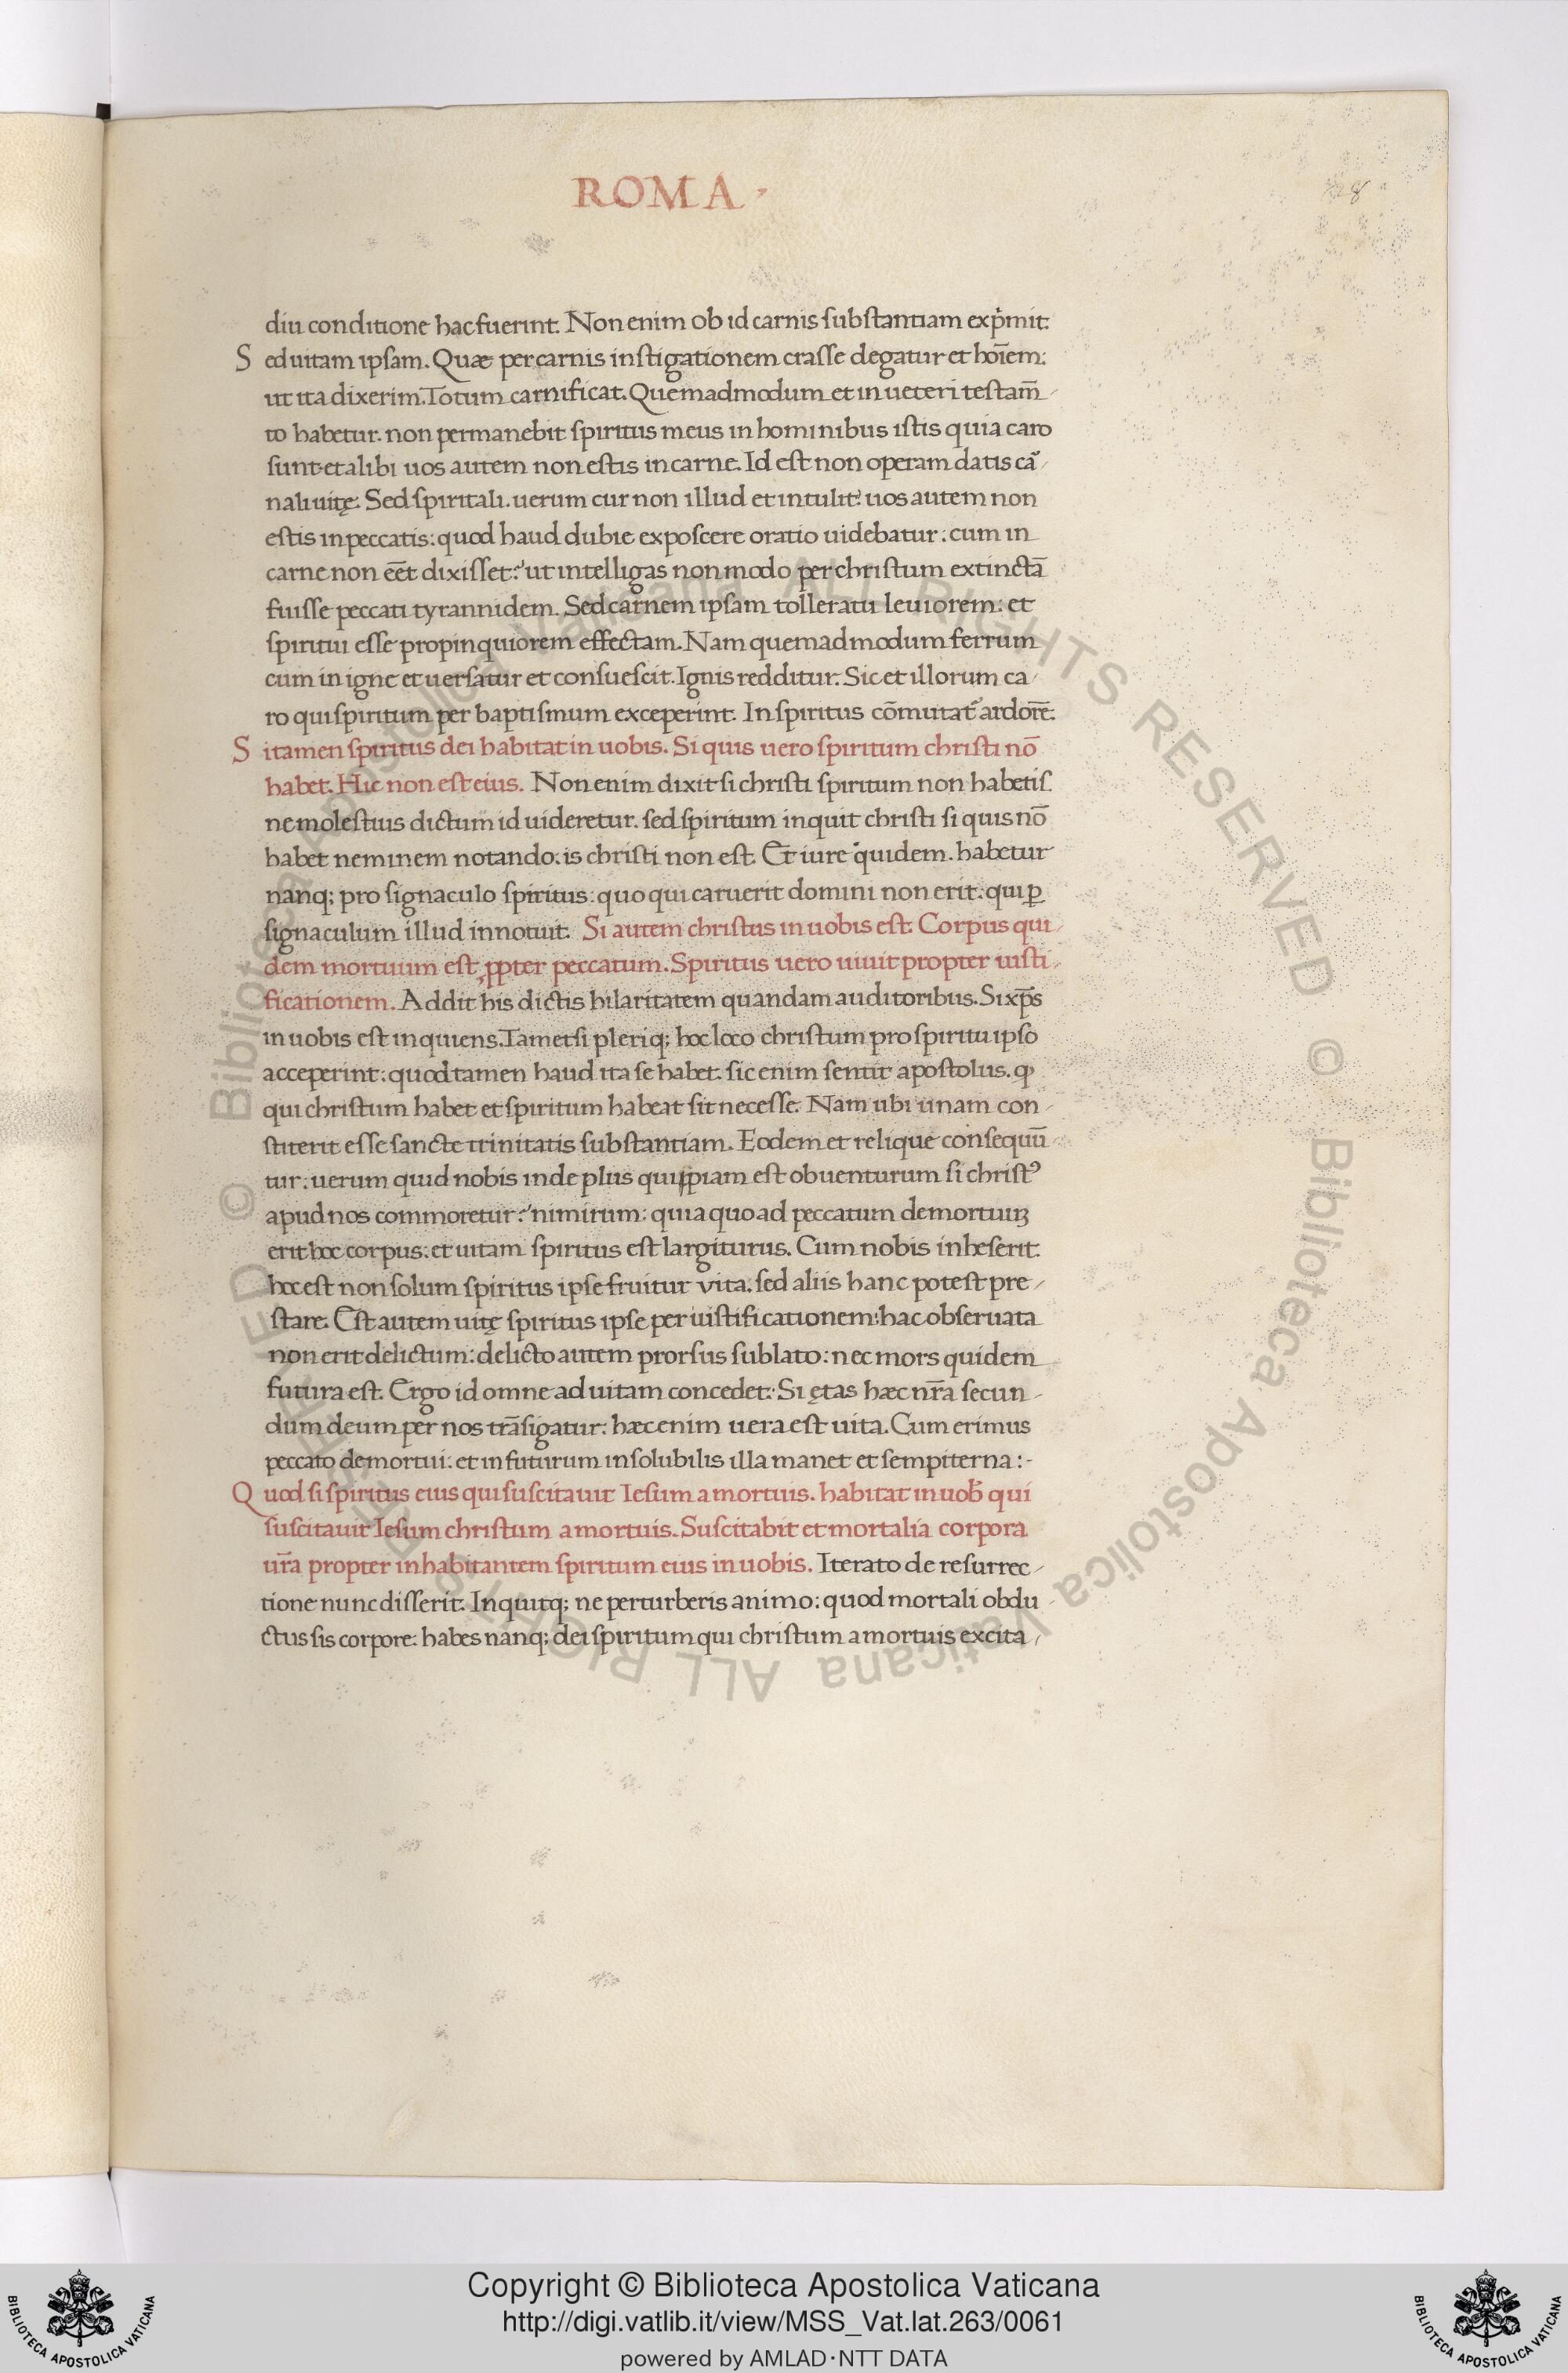 ROMA
28
diu conditione hac fuerint. Non enim ob id carnis substantiam exp̄mit:
Sed uitam ipsam. Quæ per carnis instigationem crasse degatur et hoīem:
ut ita dixerim. Totum carnificat. Quemadmodum et in ueteri testam̄-
to habetur. non permanebit spiritus meus in hominibus istis quia caro
sunt. et alibi uos autem non estis in carne. Id est non operam datis car-
nali uitę. Sed spiritali. uerum cur non illud et intulit? uos autem non
estis in peccatis: quod haud dubie exposcere oratio uidebatur: cum in
carne non eēt dixisset? ut intelligas non modo per christum extinctā
fuisse peccati tyrannidem. Sed carnem ipsam tolleratu leuiorem: et
spiritui esse propinquiorem effectam. Nam quemadmodum ferrum
cum in igne et uersatur et consuescit. Ignis redditur. Sic et illorum ca-
ro qui spiritum per baptismum exceperint. In spiritus cōmutat᷑ ardorē.
Si tamen spiritus dei habitat in uobis. Si quis uero spiritum christi nō
habet. Hic non est eius. Non enim dixit si christi spiritum non habetis.
ne molestius dictum id uideretur. sed spiritum inquit christi si quis nō
habet neminem notando. is christi non est. Et iure quidem. habetur
nanq; pro signaculo spiritus: quo qui caruerit domini non erit: qui ꝑ
signaculum illud innotuit. Si autem christus in uobis est. Corpus qui-
dem mortuum est ꝓpter peccatum. Spiritus uero uiuit propter iusti-
ficationem. Addit his dictis hilaritatem quandam auditoribus. Si xp̄s
in uobis est inquiens. Tametsi pleriq; hoc loco christum pro spiritu ipso
acceperint: quod tamen haud ita se habet. sic enim sentit apostolus. ꝙ
qui christum habet et spiritum habeat sit necesse. Nam ubi unam con-
stiterit esse sancte trinitatis substantiam. Eodem et relique consequū-
tur: uerum quid nobis inde plus quippiam est obuenturum si christꝰ
apud nos commoretur? nimirum: quia quo ad peccatum demortuuꝫ
erit hoc corpus: et uitam spiritus est largiturus. Cum nobis inheserit.
hoc est non solum spiritus ipse fruitur vita. sed aliis hanc potest pre-
stare. Est autem uitę spiritus ipse per iustificationem: hac obseruata
non erit delictum: delicto autem prorsus sublato: nec mors quidem
futura est. Ergo id omne ad uitam concedet: Si ętas hæc nr̄a secun-
dum deum per nos trāsigatur: hæc enim uera est uita. Cum erimus
peccato demortui: et in futurum insolubilis illa manet et sempiterna:-
Quod si spiritus eius qui suscitauit Iesum a mortuis. habitat in uob̄ qui
suscitauit Iesum christum a mortuis. Suscitabit et mortalia corpora
ur̄a propter inhabitantem spiritum eius in uobis. Iterato de resurrec-
tione nunc disserit. Inquitq; ne perturberis animo: quod mortali obdu-
ctus sis corpore: habes nanq; dei spiritum qui christum a mortuis excita-
© Biblioteca Apostolica Vaticana ALL RIGHTS RESERVED © Biblioteca Apostolica Vaticana ALL RIGHTS RESERVED
Copyright © Biblioteca Apostolica Vaticana
http://digi.vatlib.it/view/MSS_Vat.lat.263/0061
powered by AMLAD·NTT DATA
BIBLIOTECA APOSTOLICA VATICANA
BIBLIOTECA APOSTOLICA VATICANA